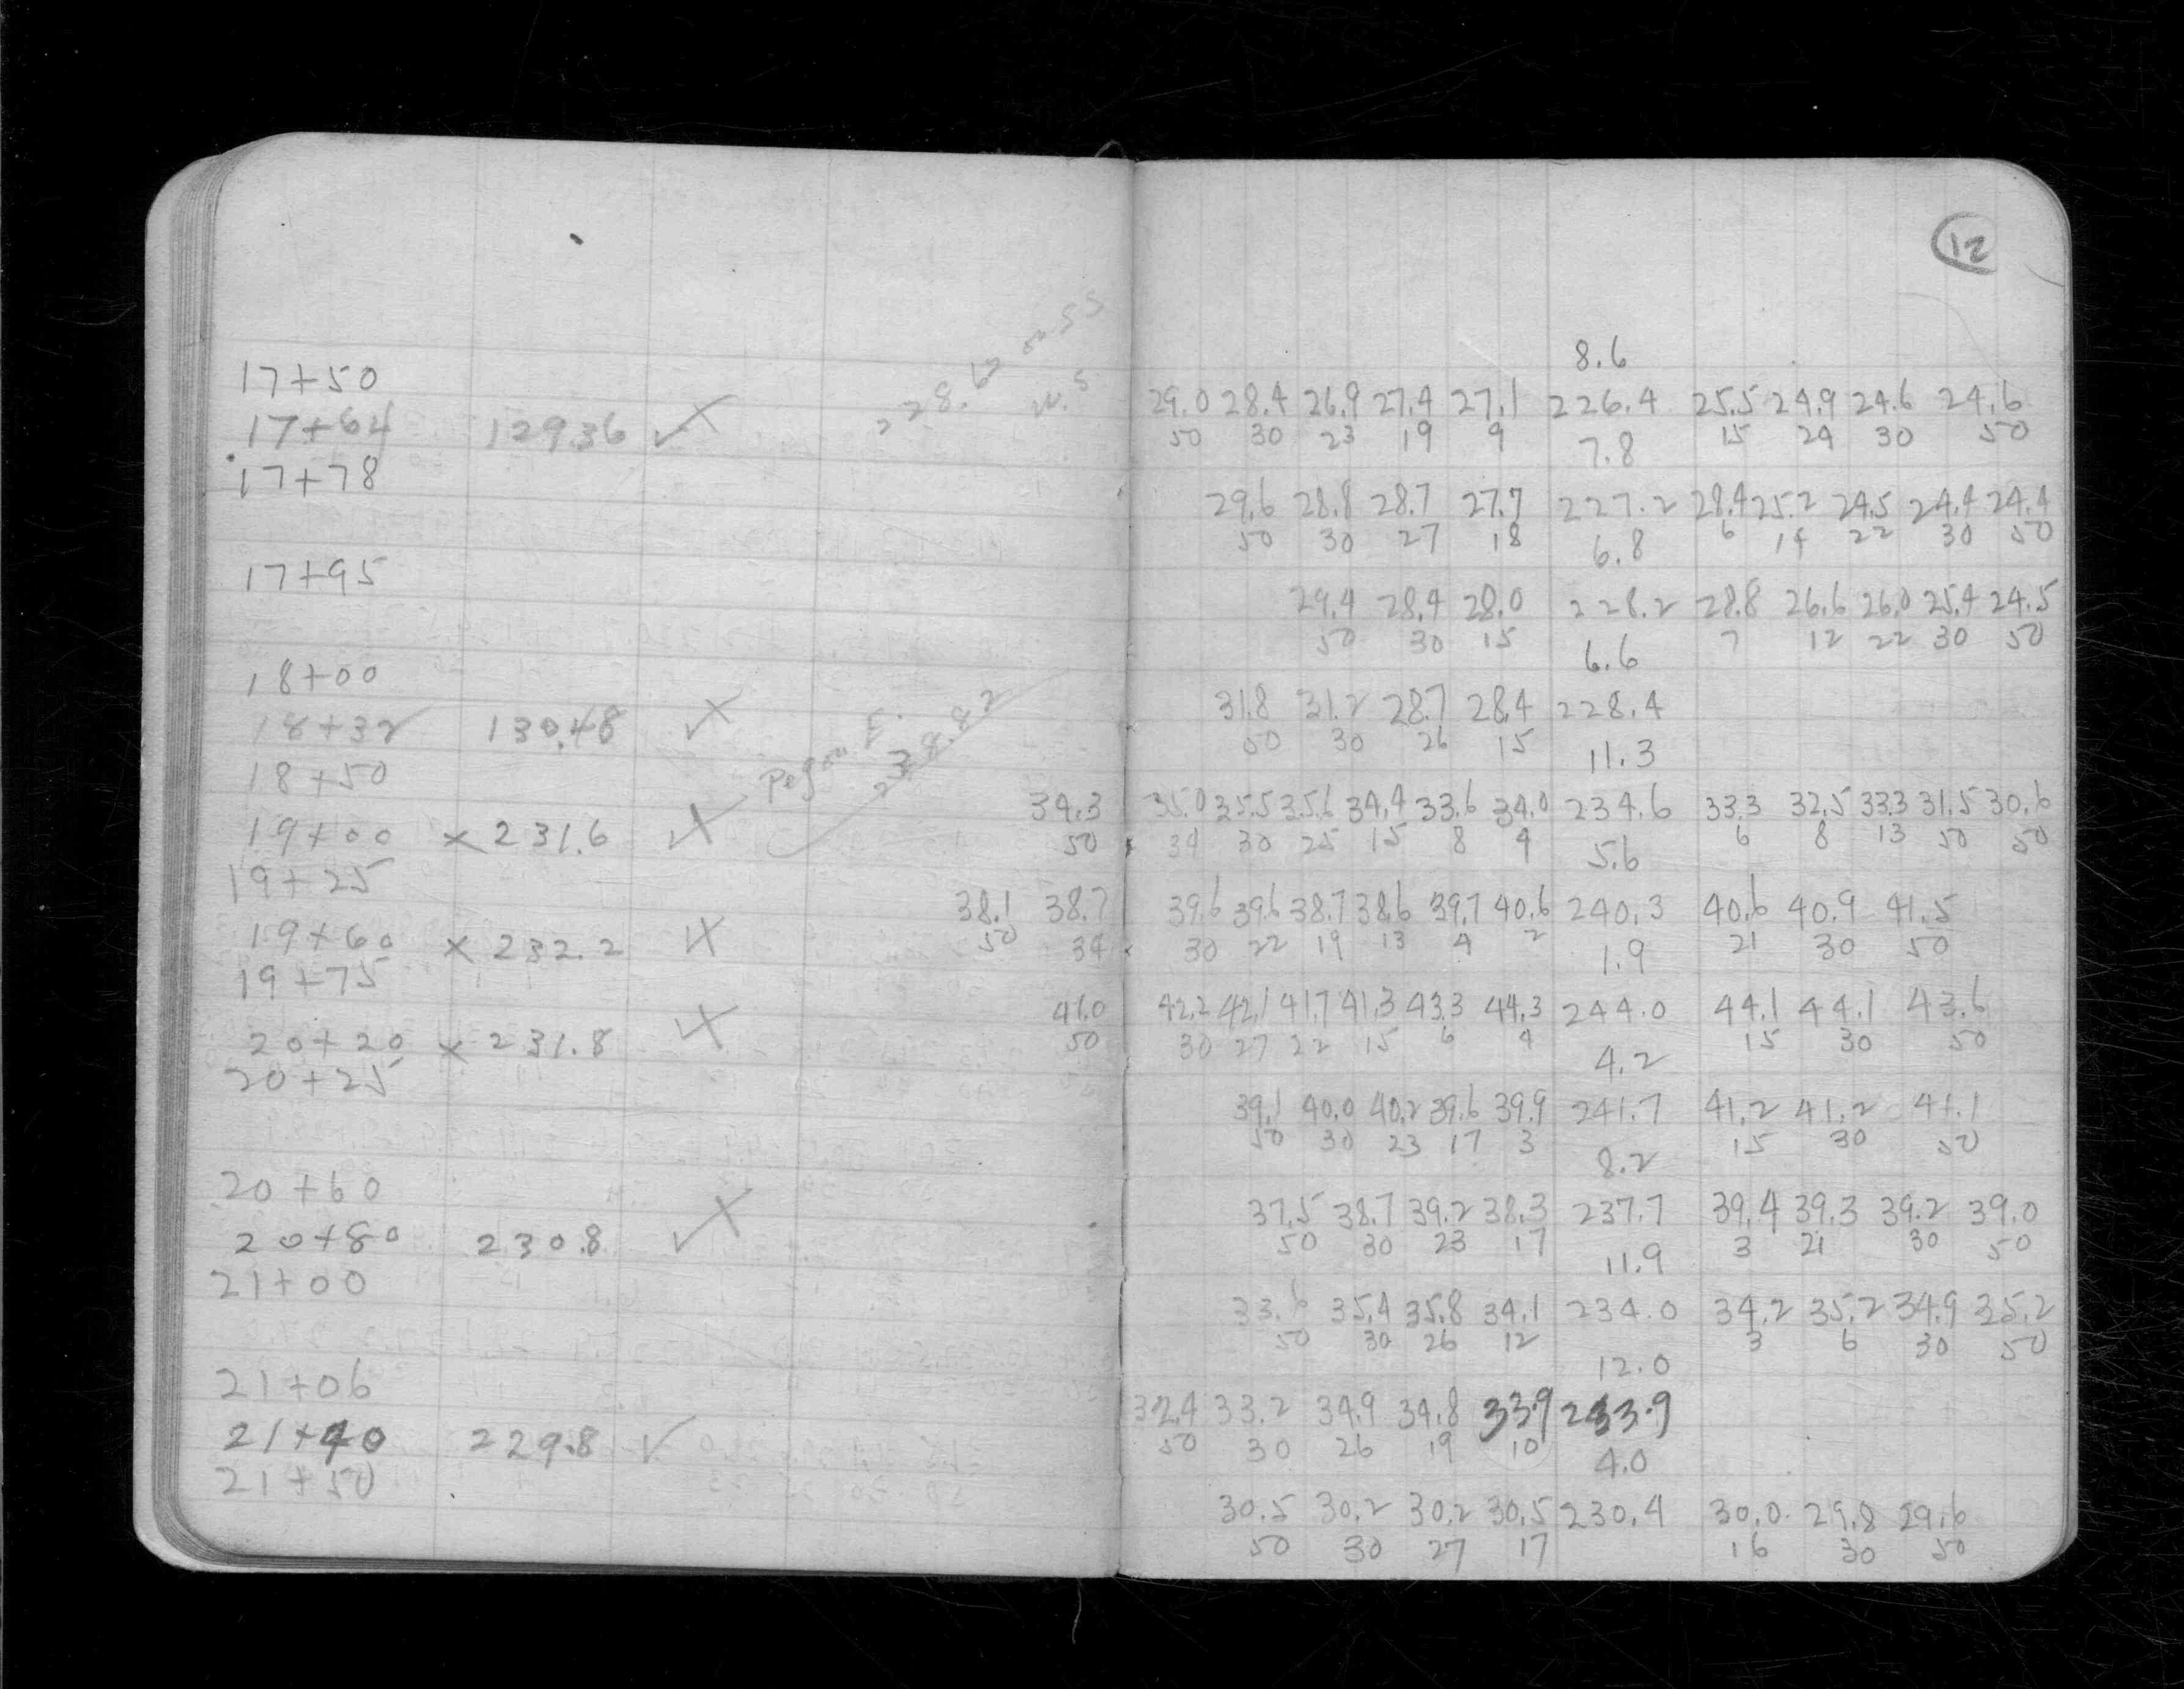 12
8.6
17+50 29.0 28.4 26.9 27.4 27.1 226.4 25.5 24.9 24.6 24.6
17+64 129.36 50 30 23 19 9 7.8 15 24 30 50
228.6 on SS
W.S
17+78 29.6 28.8 28.7 27.7 227.2 28.4 25.2 24.5 24.4 24.4
50 30 27 18 6.8 6 14 22 30 50
17+95 29.4 28.4 28.0 228.2 28.8 26.6 26.0 25.4 24.5
50 30 15 6.6 7 12 22 30 50
18+00 31.8 31.2 28.7 28.4 228.4
18+32 130.48 50 30 26 15 11.3
Peg on E.
238.82
18+50 34.3 35.0 35.5 35.6 34.4 33.6 34.0 234.6 33.3 32.5 33.3 31.5 30.6
19+00 x 231.6 50 39 30 25 15 8 4 5.6 6 8 13 50 50
19+25 38.1 38.7 39.6 39.6 38.7 38.6 39.7 40.6 240.3 40.6 40.9 41.5
19+60 x 232.2 50 34 30 22 19 13 4 2 1.9 21 30 50
19+75 41.0 42.2 42.1 41.7 41.3 43.3 44.3 244.0 44.1 44.1 43.6
20+20 x 231.8 50 30 27 22 15 6 4 4.2 15 30 50
20+25 39.1 40.0 40.2 39.6 39.9 241.7 41.2 41.2 41.1
50 30 23 17 3 8.2 15 30 50
20+60 37.5 38.7 39.2 38.3 237.7 39.4 39.3 39.2 39.0
20+80 230.8 50 30 23 17 11.9 3 21 30 50
21+00 33.6 35.4 35.8 34.1 234.0 34.2 35.2 34.9 35.2
50 30 26 12 12.0 3 6 30 50
21+06 32.4 33.2 34.9 34.8 33.9 233.9
21+40 229.8 50 30 26 19 10 4.0
21+50 30.5 30.2 30.2 30.5 230.4 30.0 29.8 29.6
50 30 27 17 16 30 50